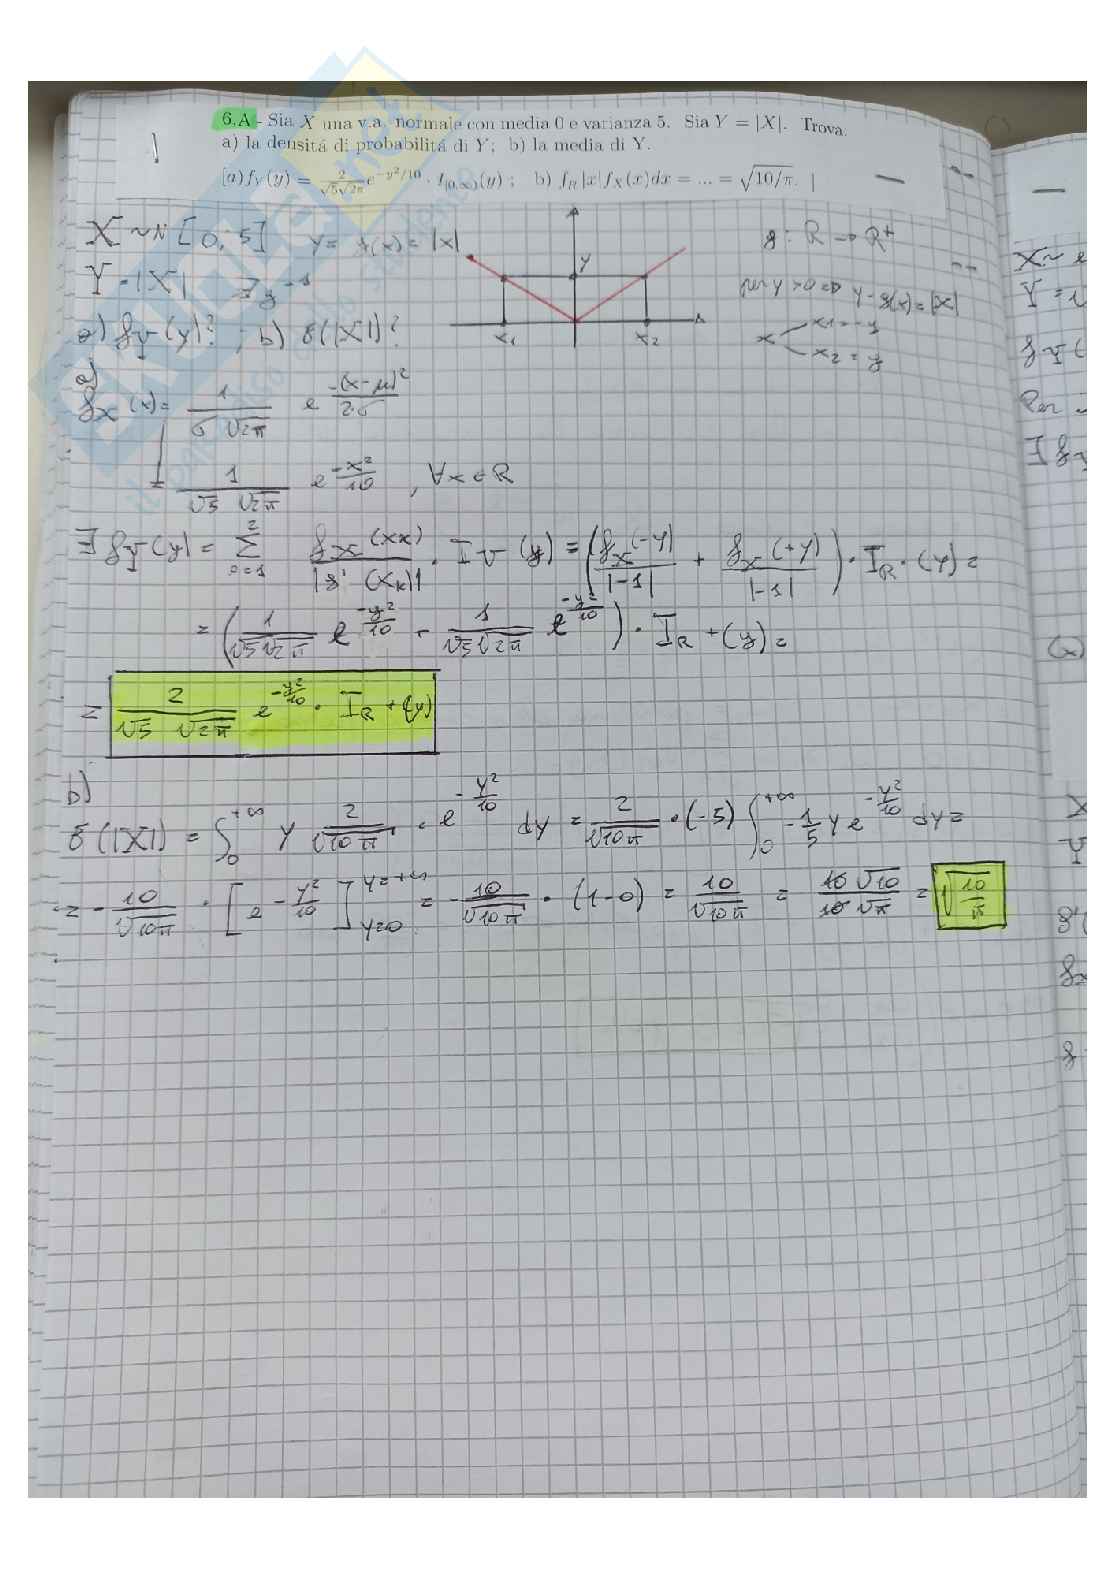 6.A - Sia X una v.a. normale con media 0 e varianza 5. Sia Y = |X|. Trova.
a) la densitá di probabilitá di Y; b) la media di Y.
[a) f_Y(y) = 2/(√5√2π) e^{-y²/10} · I_{(0,∞)}(y) ; b) ∫_R |x| f_X(x)dx = ... = √(10/π). ]
X ~ N [0, 5] Y = g(x) = |x| y g: R → R⁺
Y = |X| ∄ g⁻¹ per y > 0 ⇒ y = g(x) = |x|
a) f_Y(y)? ; b) E(|X|)? x₁ x₂ x x₁ = -y
x₂ = y
a)
f_X(x) = 1/(σ √2π) e^{-(x-μ)²/2·σ}
= 1/(√5 √2π) e^{-x²/10} , ∀x ∈ R
∃ f_Y(y) = Σ² f_X(x_k)/|g'(x_k)| · I_V(y) = (f_X(-y)/|-1| + f_X(+y)/|-1|) · I_R · (y) =
= (1/(√5√2π) e^{-y²/10} - 1/(√5√2π) e^{-y²/10}) · I_R + (y) =
= 2/(√5 √2π) e^{-y²/10} · I_R + (y)
b)
E(|X|) = ∫₀^{+∞} y 2/√10π · e^{-y²/10} dy = 2/√10π · (-5) ∫₀^{+∞} -1/5 y e^{-y²/10} dy =
= - 10/√10π · [e^{-y²/10}]_{y=0}^{y=+∞} = - 10/√10π · (1-0) = 10/√10π = 10√10/10√π = √(10/π)